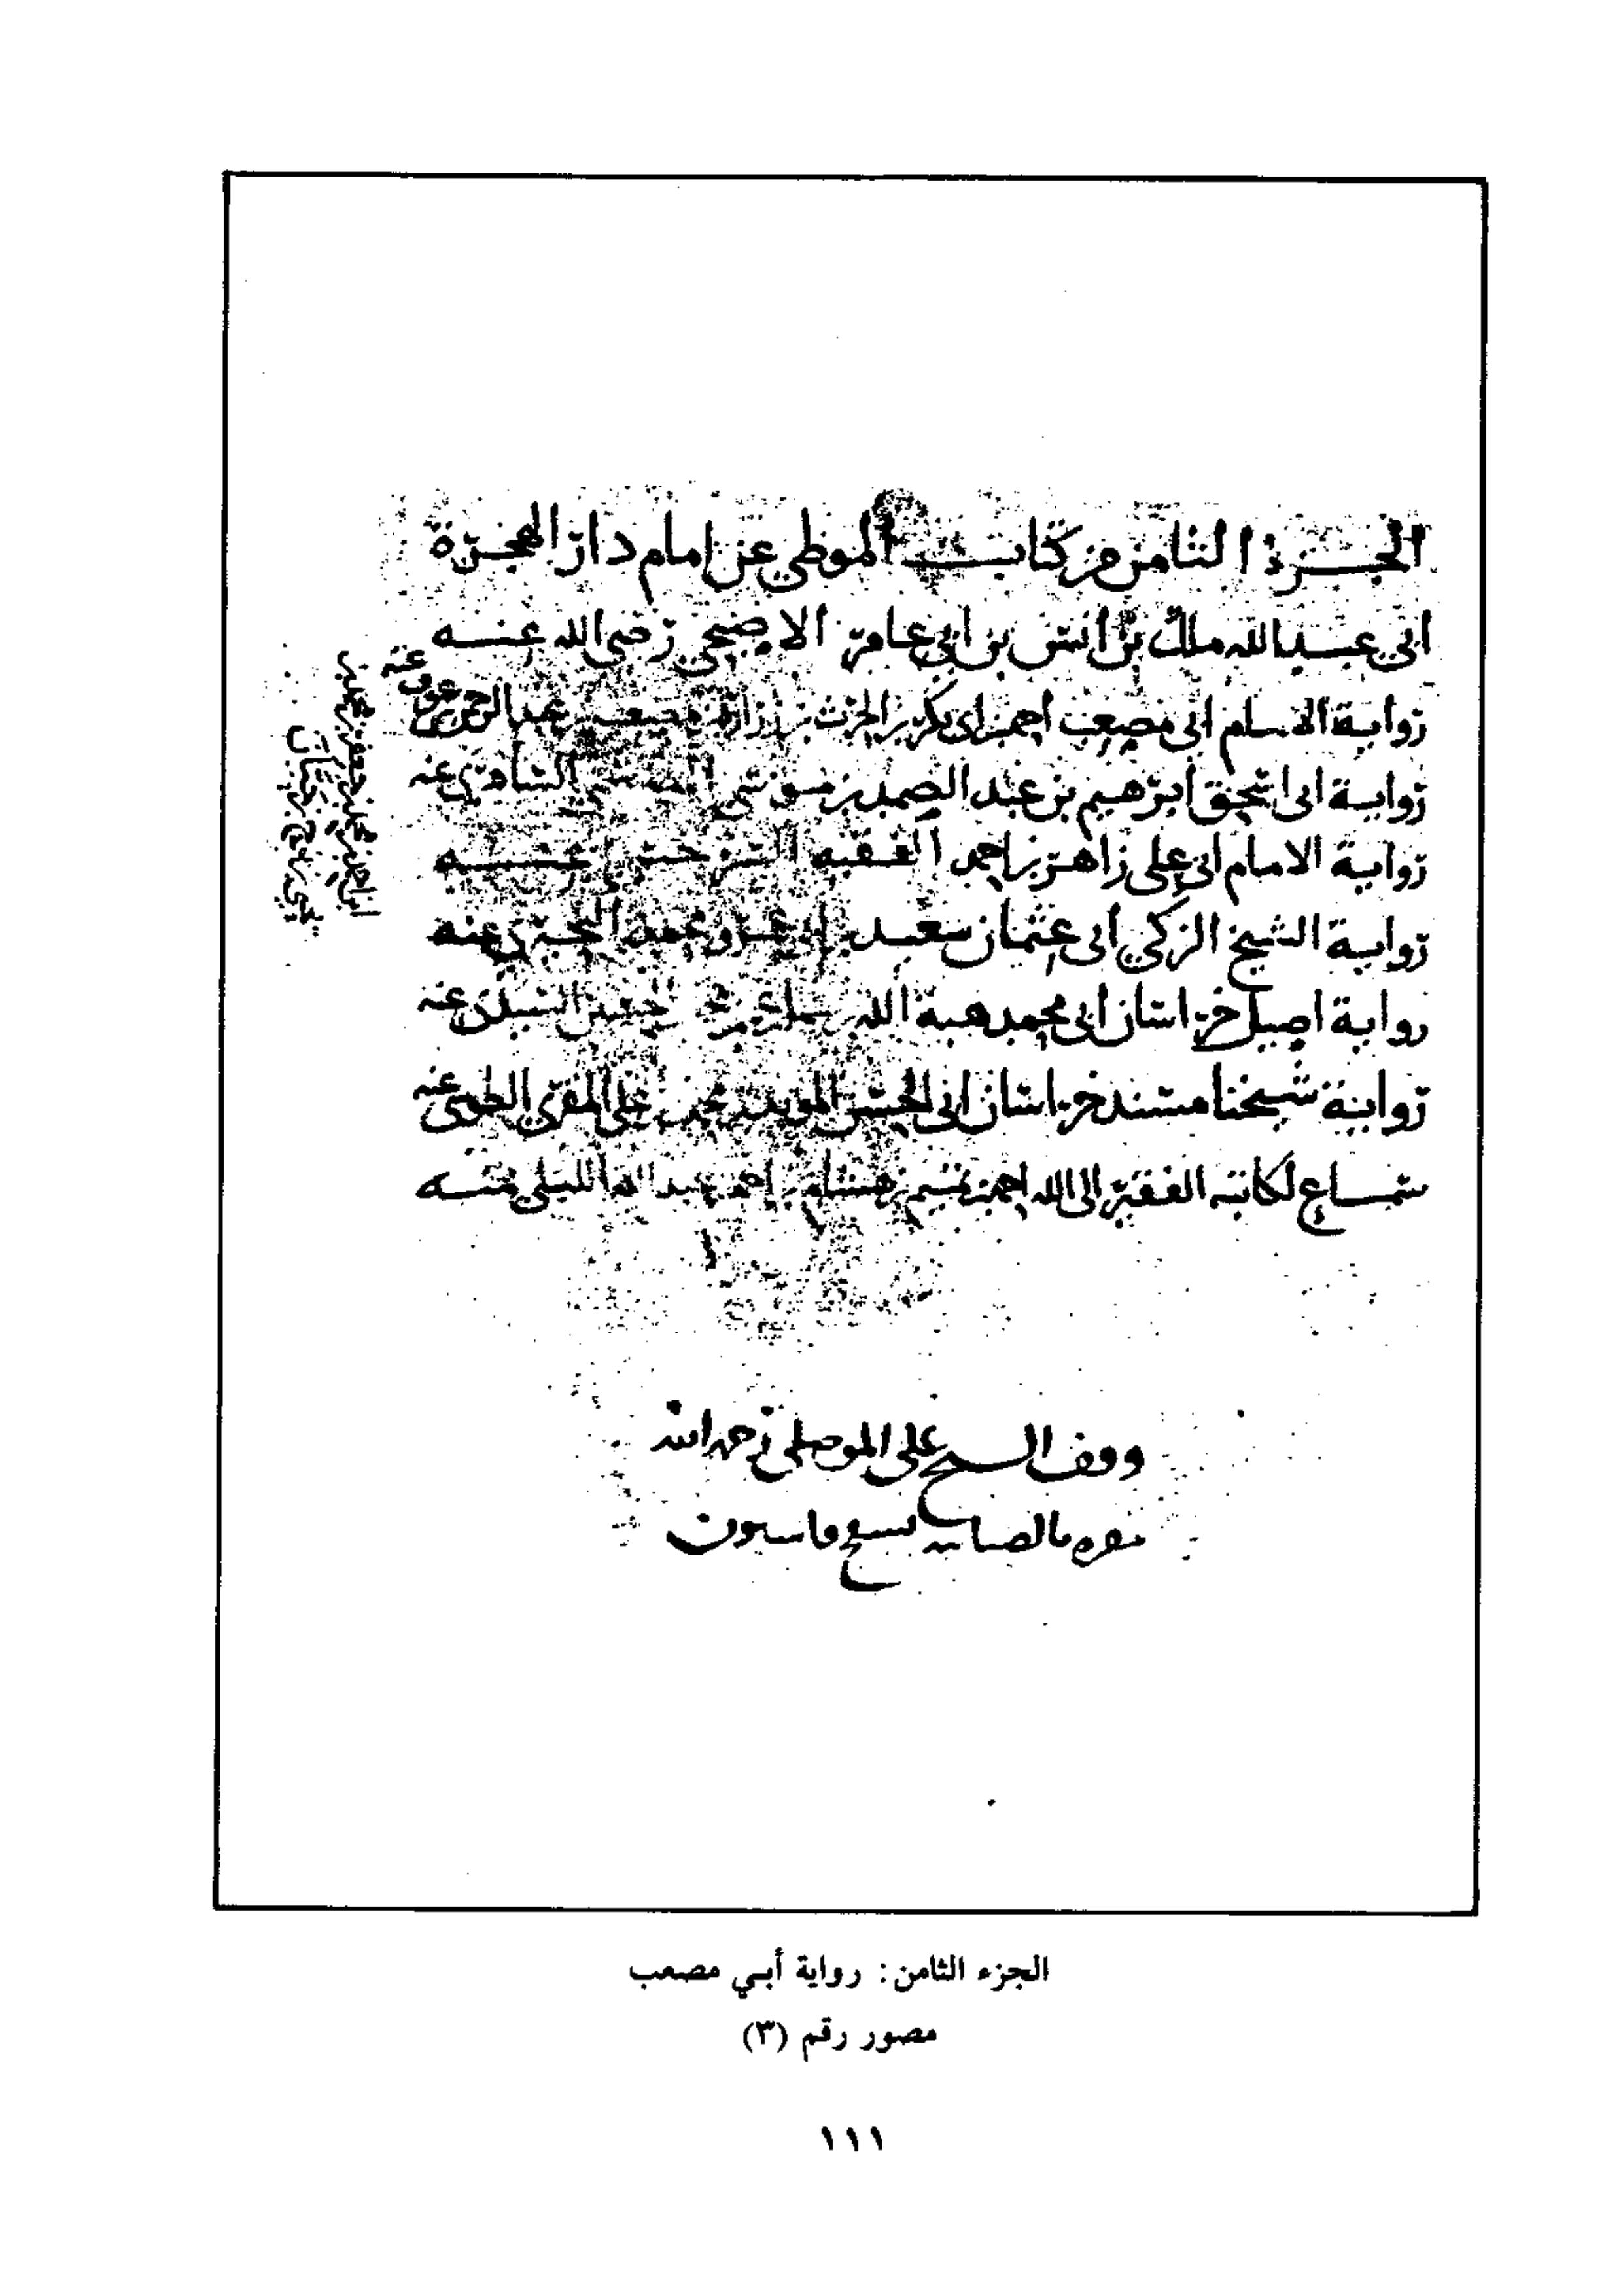 الجزء الثامن من كتاب الموطى عن امام دار الهجرة
ابى عبد الله ملك بن انس بن ابي عامر الاصبحي رضي الله عنه
رواية الامام ابى مصعب احمد بن ابى بكر بن الحرث بن زرارة بن مصعب بن عبد الرحمن بن عوف عنه
رواية ابى اسحق ابرهيم بن عبد الصمد بن موسى الهاشمي السامري عنه
رواية الامام ابى على زاهر بن احمد الفقيه السرخسي عنه
رواية الشيخ الزكي ابى عثمان سعيد بن ابى عمرو محمد البحيري عنه
رواية اصيل خراسان ابى محمد هبة الله بن سهل بن عمر بن محمد السيدي عنه
رواية شيخنا مسند خراسان ابى الحسن المويد بن محمد بن علي المقري الطوسي عنه
سماع لكاتبه الفقير الى الله احمد بن تميم بن هشام بن احمد بن عبد الله اللبلي منه
وقف الشيخ على الموصلي رحمه الله
مقره بالضيائية بسفح قاسيون
الجزء الثامن: رواية أبي مصعب
مصور رقم (٣)
١١١